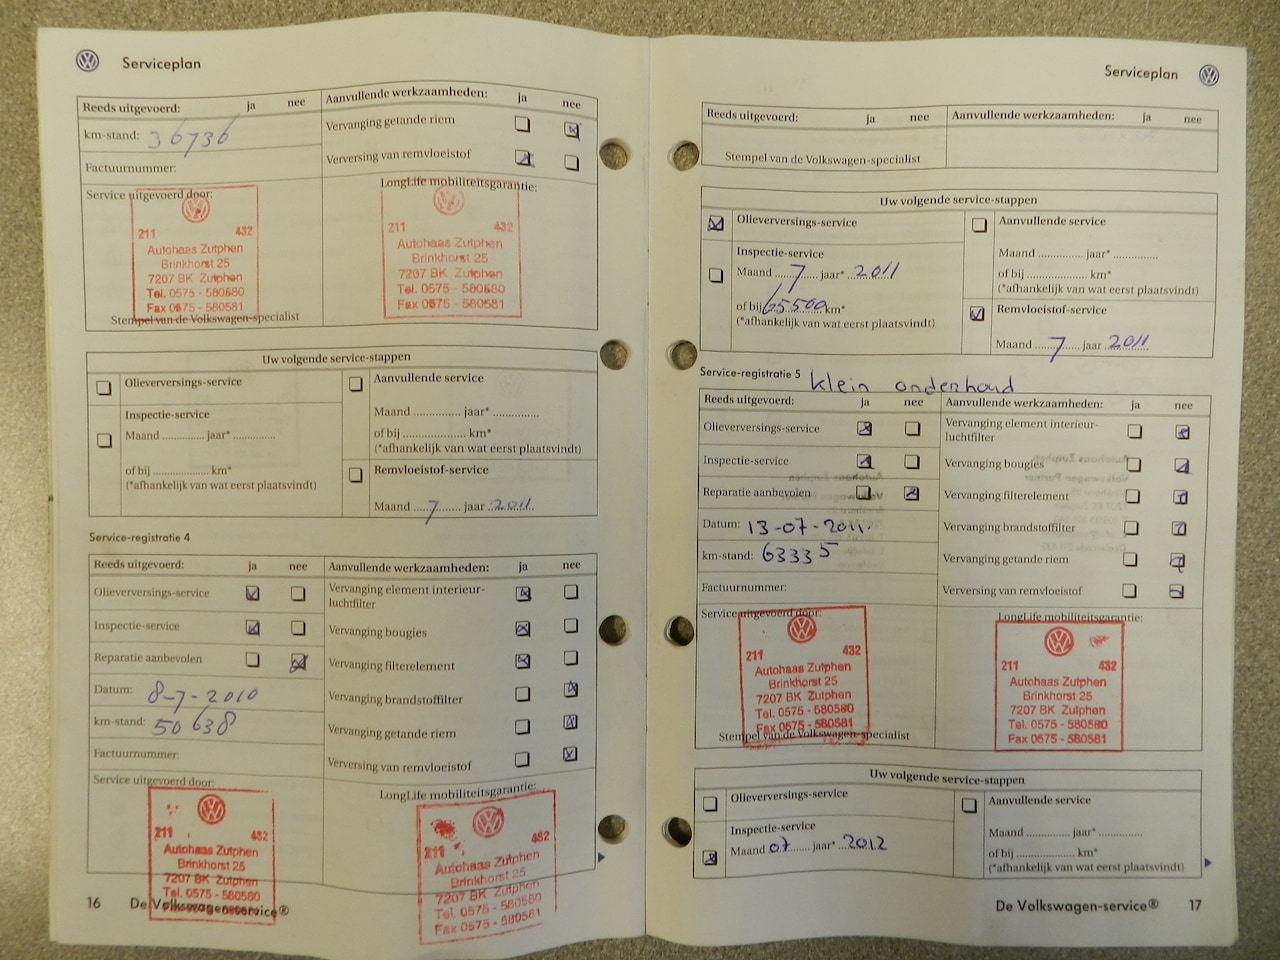 Serviceplan
Reeds uitgevoerd: ja nee
km-stand: 36736
Factuurnummer:
Service uitgevoerd door:
211 432
Autohaas Zutphen
Brinkhorst 25
7207 BK Zutphen
Tel. 0575 - 580580
Fax 0575 - 580581
Stempel van de Volkswagen-specialist
Aanvullende werkzaamheden: ja nee
Vervanging getande riem
Verversing van remvloeistof
LongLife mobiliteitsgarantie:
211 432
Autohaas Zutphen
Brinkhorst 25
7207 BK Zutphen
Tel. 0575 - 580580
Fax 0575 - 580581
Uw volgende service-stappen
Olieverversings-service
Inspectie-service
Maand .............. jaar* ..............
of bij .................. km*
(*afhankelijk van wat eerst plaatsvindt)
Aanvullende service
Maand .............. jaar* ..............
of bij .................. km*
(*afhankelijk van wat eerst plaatsvindt)
Remvloeistof-service
Maand 7 jaar 2011
Service-registratie 4
Reeds uitgevoerd: ja nee
Olieverversings-service
Inspectie-service
Reparatie aanbevolen
Datum: 8-7-2010
km-stand: 50638
Factuurnummer:
Service uitgevoerd door:
211 432
Autohaas Zutphen
Brinkhorst 25
7207 BK Zutphen
Tel. 0575 - 580580
Aanvullende werkzaamheden: ja nee
Vervanging element interieur-
luchtfilter
Vervanging bougies
Vervanging filterelement
Vervanging brandstoffilter
Vervanging getande riem
Verversing van remvloeistof
LongLife mobiliteitsgarantie:
211 432
Autohaas Zutphen
Brinkhorst 25
7207 BK Zutphen
Tel. 0575 - 580580
Fax 0575 - 580581
16 De Volkswagen-service®
Serviceplan
Reeds uitgevoerd: ja nee
Stempel van de Volkswagen-specialist
Aanvullende werkzaamheden: ja nee
Uw volgende service-stappen
Olieverversings-service
Inspectie-service
Maand 7 jaar* 2011
of bij 65500 km*
(*afhankelijk van wat eerst plaatsvindt)
Aanvullende service
Maand .............. jaar* ..............
of bij .................. km*
(*afhankelijk van wat eerst plaatsvindt)
Remvloeistof-service
Maand 7 jaar 2011
Service-registratie 5 klein onderhoud
Reeds uitgevoerd: ja nee
Olieverversings-service
Inspectie-service
Reparatie aanbevolen
Datum: 13-07-2011.
km-stand: 63335
Factuurnummer:
Service uitgevoerd door:
211 432
Autohaas Zutphen
Brinkhorst 25
7207 BK Zutphen
Tel. 0575 - 580580
Fax 0575 - 580581
Stempel van de Volkswagen-specialist
Aanvullende werkzaamheden: ja nee
Vervanging element interieur-
luchtfilter
Vervanging bougies
Vervanging filterelement
Vervanging brandstoffilter
Vervanging getande riem
Verversing van remvloeistof
LongLife mobiliteitsgarantie:
211 432
Autohaas Zutphen
Brinkhorst 25
7207 BK Zutphen
Tel. 0575 - 580580
Fax 0575 - 580581
Uw volgende service-stappen
Olieverversings-service
Inspectie-service
Maand 07 jaar* 2012
Aanvullende service
Maand .............. jaar* ..............
of bij .................. km*
(*afhankelijk van wat eerst plaatsvindt)
De Volkswagen-service® 17